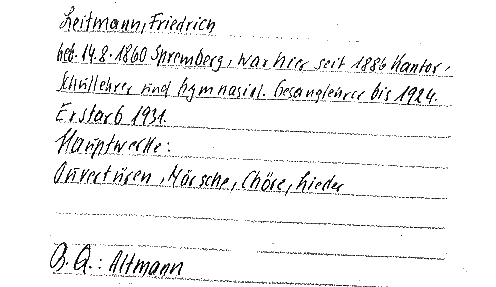 Leitmann, Friedrich
geb. 14.8.1860 Spremberg, war hier seit 1886 Kantor,
Schullehrer und Gymnasial. Gesanglehrer bis 1924.
Er starb 1931.
Hauptwerke:
Ouvertüren, Märsche, Chöre, Lieder
B. Q.: Altmann